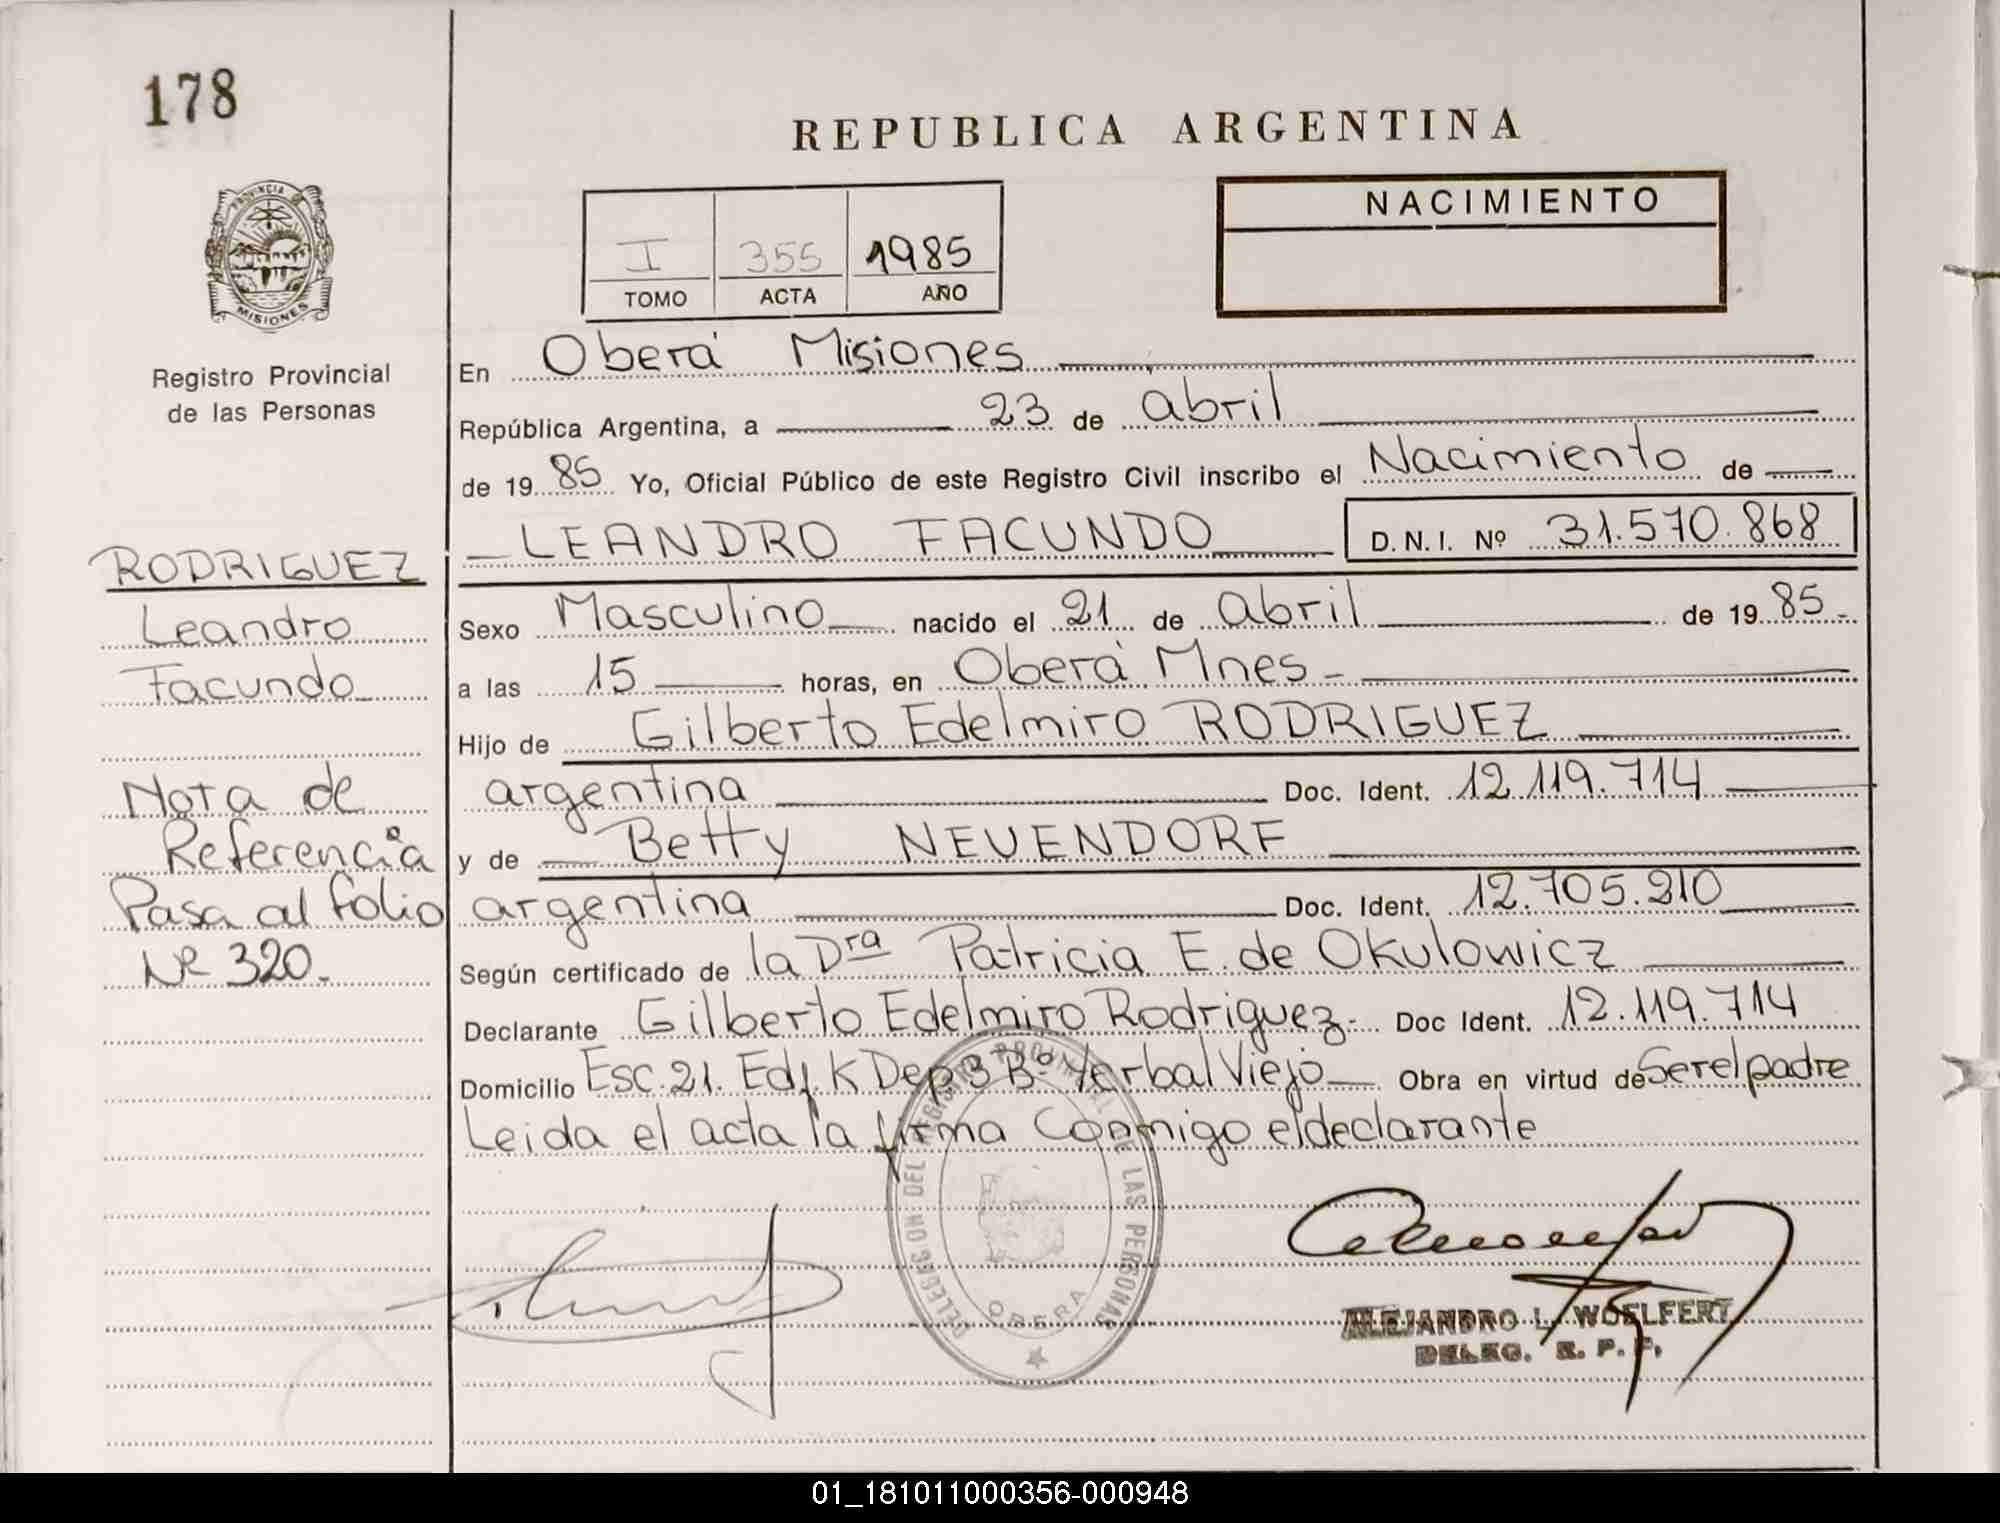 178
REPUBLICA ARGENTINA
PROVINCIA DE
MISIONES
Registro Provincial
de las Personas
I 355 1985
TOMO ACTA AÑO
NACIMIENTO
En Oberá Misiones
República Argentina, a 23 de abril
de 1985 Yo, Oficial Público de este Registro Civil inscribo el Nacimiento de
LEANDRO FACUNDO D.N.I. Nº 31.570.868
RODRIGUEZ
Leandro
Facundo
Nota de
Referencia
Pasa al folio
Nº 320.
Sexo Masculino nacido el 21 de abril de 1985.-
a las 15 horas, en Oberá Mnes-
Hijo de Gilberto Edelmiro RODRIGUEZ
argentina Doc. Ident. 12.119.714
y de Betty NEUENDORF
argentina Doc. Ident. 12.705.210
Según certificado de la Dra Patricia E. de Okulowicz
Declarante Gilberto Edelmiro Rodriguez- Doc Ident. 12.119.714
Domicilio Esc. 21. Edf. K Dep 3 Bº Yerbal Viejo Obra en virtud de Ser el padre
Leida el acta la firma Conmigo el declarante
DELEGACION DEL REGISTRO PROVINCIAL DE LAS PERSONAS
OBERA
ALEJANDRO L. WOELFERT
DELEG. R. P. P.
01_181011000356-000948